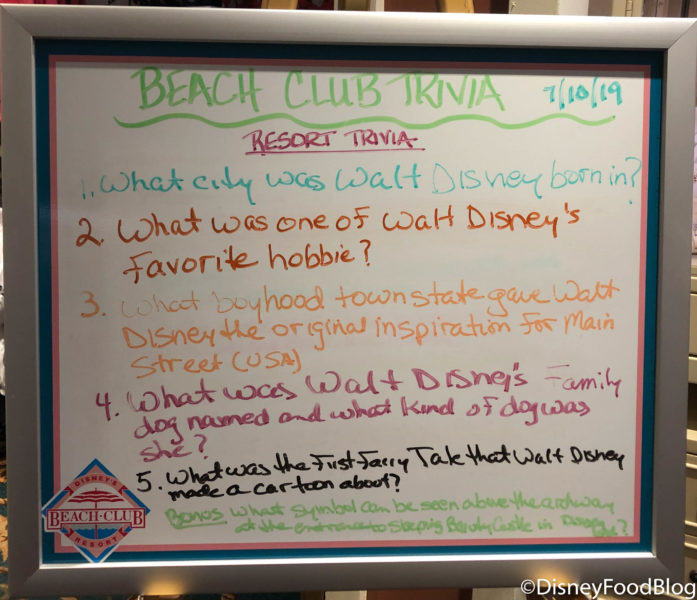 BEACH CLUB TRIVIA 7/10/19
RESORT TRIVIA
1. What city was Walt Disney born in?
2. What was one of Walt Disney's
favorite hobbie?
3. What boyhood town state gave Walt
Disney the original inspiration for Main
Street (USA)
4. What was Walt Disney's Family
dog named and what kind of dog was
she?
5. What was the First Fairy Tale that Walt Disney
made a cartoon about?
Bonus What symbol can be seen above the archway
at the entrance to Sleeping Beauty Castle in Disney
DISNEY'S
BEACH·CLUB
RESORT
©DisneyFoodBlog